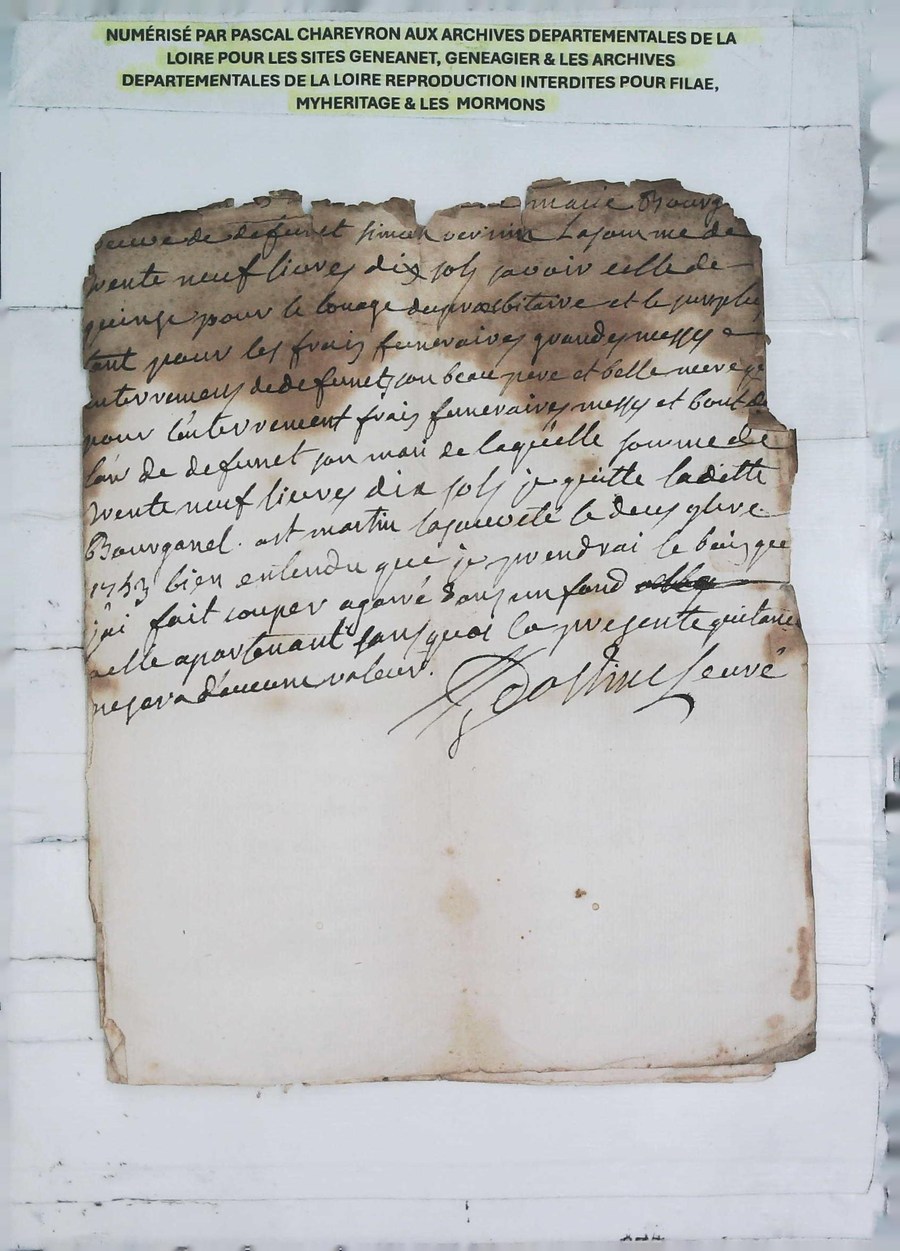 NUMÉRISÉ PAR PASCAL CHAREYRON AUX ARCHIVES DEPARTEMENTALES DE LA
LOIRE POUR LES SITES GENEANET, GENEAGIER & LES ARCHIVES
DEPARTEMENTALES DE LA LOIRE REPRODUCTION INTERDITES POUR FILAE,
MYHERITAGE & LES MORMONS
marie Bourg
veuve de defunct simon vernin La somme de
trente neuf livres dix sols savoir celle de
quinze pour le louage du presbitaire et le surplus
tant pour les frais funeraires grandes messes
enterremens de defuncts son beau pere et belle mere
pour l'enterrement frais funeraires messes et bout de
l'an de defunct son mari de laquelle somme de
trente neuf livres dix sols je quitte laditte
Bourganel. a st martin lasauveté le deux
1753 bien entendu que je prendrai le bois que
j'ai fait couper dans un fond
elle apartenant sans quoi la presente quitance
ne sera d'aucune valeur.
curé